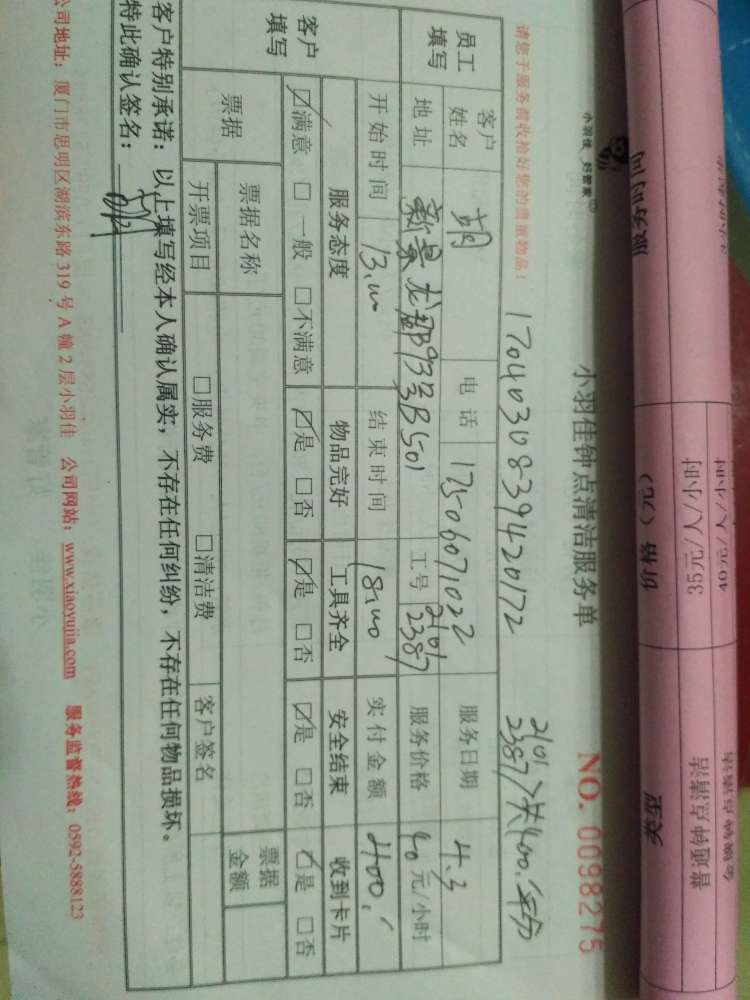 服务时间 价格（元） 类型
35元/人/小时 普通钟点清洁
40元/人/小时
小羽佳 好管家
小羽佳钟点清洁服务单
NO. 0098275
请您于服务前收拾好您的贵重物品！
1704030839420172
2101
2387 共400.
员工填写 客户姓名 胡 电话 17506071022 服务日期 4.3
地址 新景龙郡B93号B501 工号 2101 2387 服务价格 40元/小时
客户填写 开始时间 13:00 结束时间 18:00 实付金额 400.
服务态度 物品完好 工具齐全 安全结束 收到卡片
☑满意 □一般 □不满意 ☑是 □否 ☑是 □否 ☑是 □否 ☑是 □否
票据 票据名称 票据金额
开票项目 □服务费 □清洁费 客户签名
客户特别承诺：以上填写经本人确认属实，不存在任何纠纷，不存在任何物品损坏。
特此确认签名：
公司地址：厦门市思明区湖滨东路 319 号 A 幢 2 层小羽佳 公司网站：www.xiaoyujia.com 服务监督热线：0592-5888123